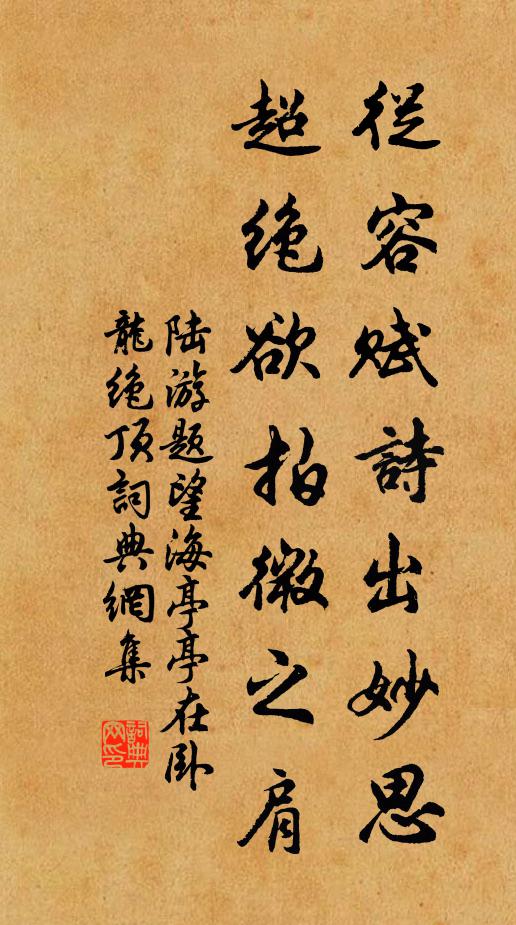 從容賦詩出妙思
超絕欲拍微之肩
陆游题望海亭亭在卧
龍絕頂詞典網集
詞典
网印